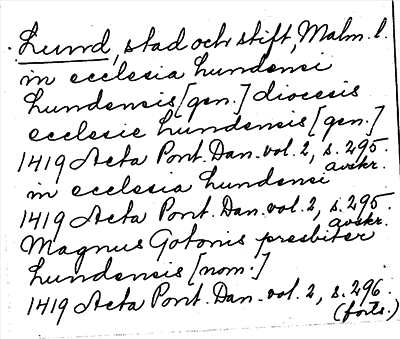 Lund, stad och stift, Malm. l.
in ecclesia Lundensi
Lundensis [gen.] diocesis
ecclesie Lundensis [gen.]
1419 Acta Pont. Dan. vol. 2, s. 295.
avskr.
in ecclesia Lundensi
1419 Acta Pont. Dan. vol. 2, s. 295
avskr.
Magnus Gotonis presbiter
Lundensis [nom.]
1419 Acta Pont. Dan. vol. 2, s. 296.
(forts.)